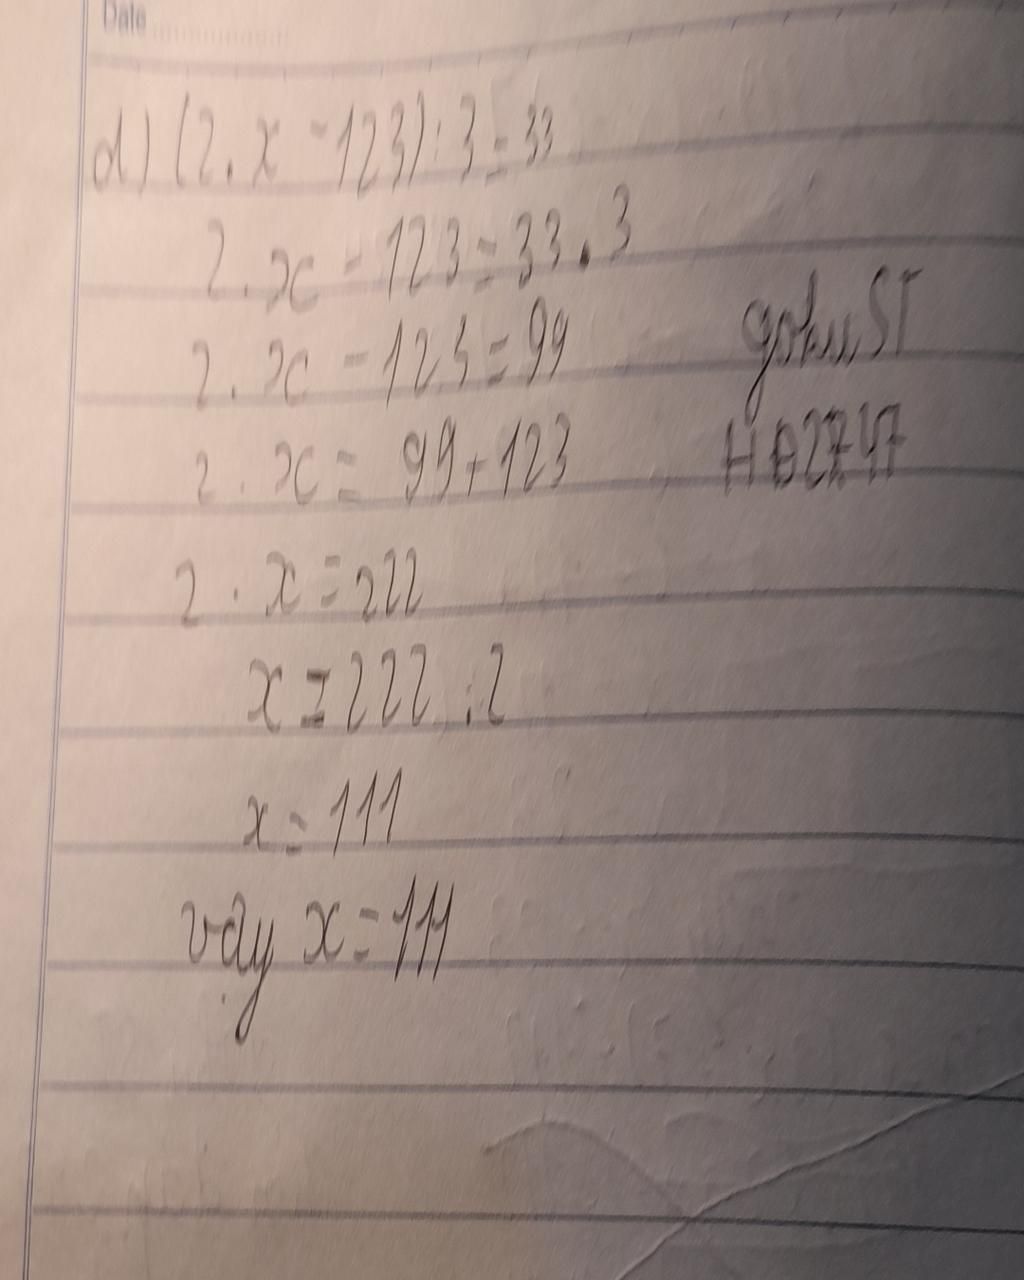 Date
d) (2.x - 123) : 3 = 33
2.x - 123 = 33.3
2.x - 123 = 99
gohu ST
2.x = 99 + 123
2.x = 222
x = 222 : 2
x = 111
vậy x = 111